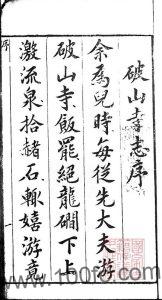 破山寺志序
余爲兒時每從先大夫游
破山寺飯罷絕龍磵下上
激流泉拾赭石輒嬉游竟
序
www.100fo.com